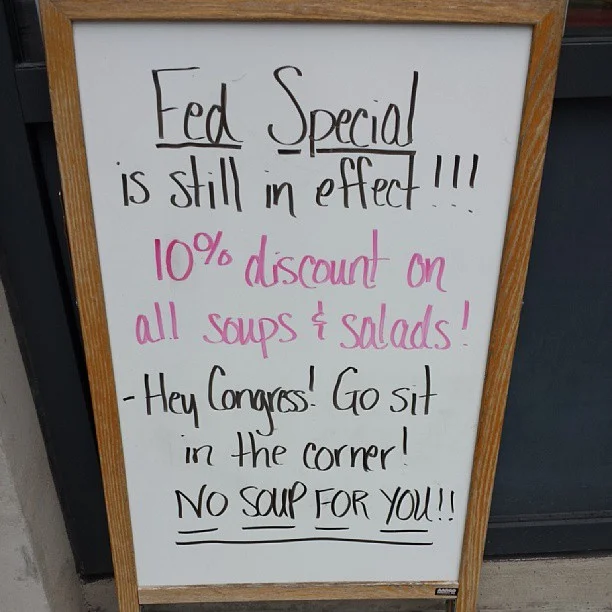 Fed Special
is still in effect!!!
10% discount on
all soups & salads!
- Hey Congress! Go sit
in the corner!
NO SOUP FOR YOU!!